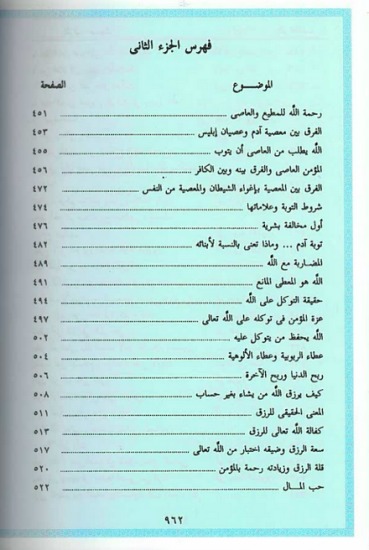 فهرس الجزء الثانى
الموضـــوع الصفحة
رحمة اللَّه للمطيع والعاصى ٤٥١
الفرق بين معصية آدم وعصيان إبليس ٤٥٣
اللَّه يطلب من العاصى أن يتوب ٤٥٥
المؤمن العاصى والفرق بينه وبين الكافر ٤٥٦
الفرق بين المعصية بإغواء الشيطان والمعصية من النفس ٤٧٢
شروط التوبة وعلاماتها ٤٧٤
أول مخالفة بشرية ٤٧٦
توبة آدم ... وماذا تعنى بالنسبة لأبنائه ٤٨٢
المضاربة مع اللَّه ٤٨٩
اللَّه هو المعطى المانع ٤٩١
حقيقة التوكل على اللَّه ٤٩٤
عزة المؤمن فى توكله على اللَّه تعالى ٤٩٧
اللَّه يحفظ من يتوكل عليه ٥٠٢
عطاء الربوبية وعطاء الألوهية ٥٠٤
ربح الدنيا وربح الآخرة ٥٠٦
كيف يرزق اللَّه من يشاء بغير حساب ٥٠٨
المعنى الحقيقى للرزق ٥١١
كفالة اللَّه تعالى للرزق ٥١٣
سعة الرزق وضيقه اختبار من اللَّه تعالى ٥١٧
قلة الرزق وزيادته رحمة بالمؤمن ٥٢٠
حب المـــال ٥٢٢
٩٦٢